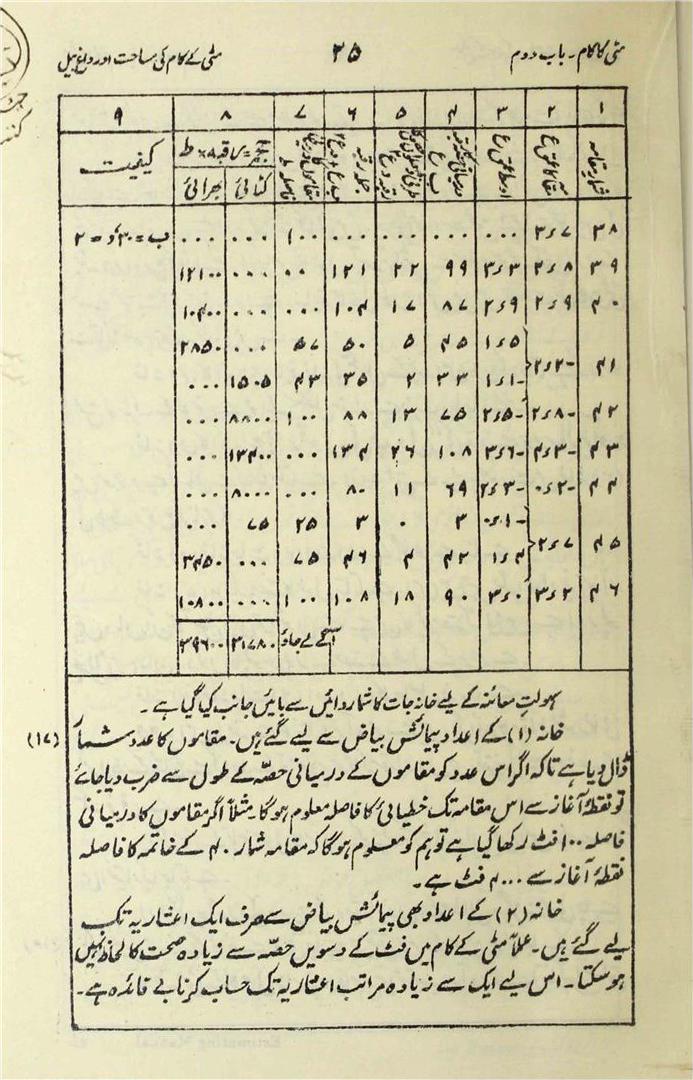 مٹی کا کام ۔ باب دوم ۲۵ مٹی کے کام کی مساحت اور داغ بیل
۱ ۲ ۳ ۴ ۵ ۶ ۷ ۸ ۹
شمار مقامہ اوسط عمق ع فاصلہ ط کیفیت
کٹائی بھرائی
۳۸ ۳ء۷ ... ... ... ... ۱۰۰ ... ... ب = ۳۰، و = ۲
۳۹ ۲ء۸ ۳ء۳ ۹۹ ۲۲ ۱۲۱ ۰۰ ... ۱۲۱۰۰
۴۰ ۲ء۹ ۲ء۹ ۸۷ ۱۷ ۱۰۴ ... ... ۱۰۴۰۰
۱ء۵ ۴۵ ۵ ۵۰ ۵۷ ... ۲۸۵۰
۴۱ -۲ء۲
-۱ء۱ ۳۳ ۲ ۳۵ ۴۳ ۱۵۰۵ ...
۴۲ -۲ء۸ -۲ء۵ ۷۵ ۱۳ ۸۸ ۱۰۰ ۸۸۰۰ ...
۴۳ -۴ء۳ -۳ء۶ ۱۰۸ ۲۶ ۱۳۴ ... ۱۳۴۰۰ ...
۴۴ -۰ء۲ -۲ء۳ ۶۹ ۱۱ ۸۰ ... ۸۰۰۰ ...
-۰ء۱ ۳ ۰ ۳ ۲۵ ۷۵ ...
۴۵ ۲ء۷
۱ء۴ ۴۲ ۴ ۴۶ ۷۵ ... ۳۴۵۰
۴۶ ۳ء۲ ۳ء۰ ۹۰ ۱۸ ۱۰۸ ۱۰۰ ... ۱۰۸۰۰
آگے لے جاؤ ۳۱۷۸۰ ۳۹۶۰۰
سہولتِ معائنہ کے لیے خانہ جات کا شمار دائیں سے بائیں جانب کیا گیا ہے ۔
خانہ (۱) کے اعداد پیمائشی بیاض سے لیے گئے ہیں۔ مقاموں کا عدد شماراً (۱۷)
ڈال دیا ہے تاکہ اگر اس عدد کو مقاموں کے درمیانی حصّہ کے طول سے ضرب دیا جائے
تو نقطۂ آغاز سے اس مقامہ تک خطیائی کا فاصلہ معلوم ہوگا مثلاً اگر مقاموں کا درمیانی
فاصلہ ۱۰۰ فٹ رکھا گیا ہے تو ہم کو معلوم ہوگا کہ مقامہ شمار ۴۰ کے خاتمہ کا فاصلہ
نقطۂ آغاز سے ۴۰۰۰ فٹ ہے ۔
خانہ (۲) کے اعداد بھی پیمائشی بیاض سے صرف ایک اعشاریہ تک
لیے گئے ہیں۔ عملاً مٹی کے کام میں فٹ کے دسویں حصّہ سے زیادہ صحت کا لحاظ نہیں
ہو سکتا۔ اس لیے ایک سے زیادہ مراتب اعشاریہ تک حساب کرنا بے فائدہ ہے۔